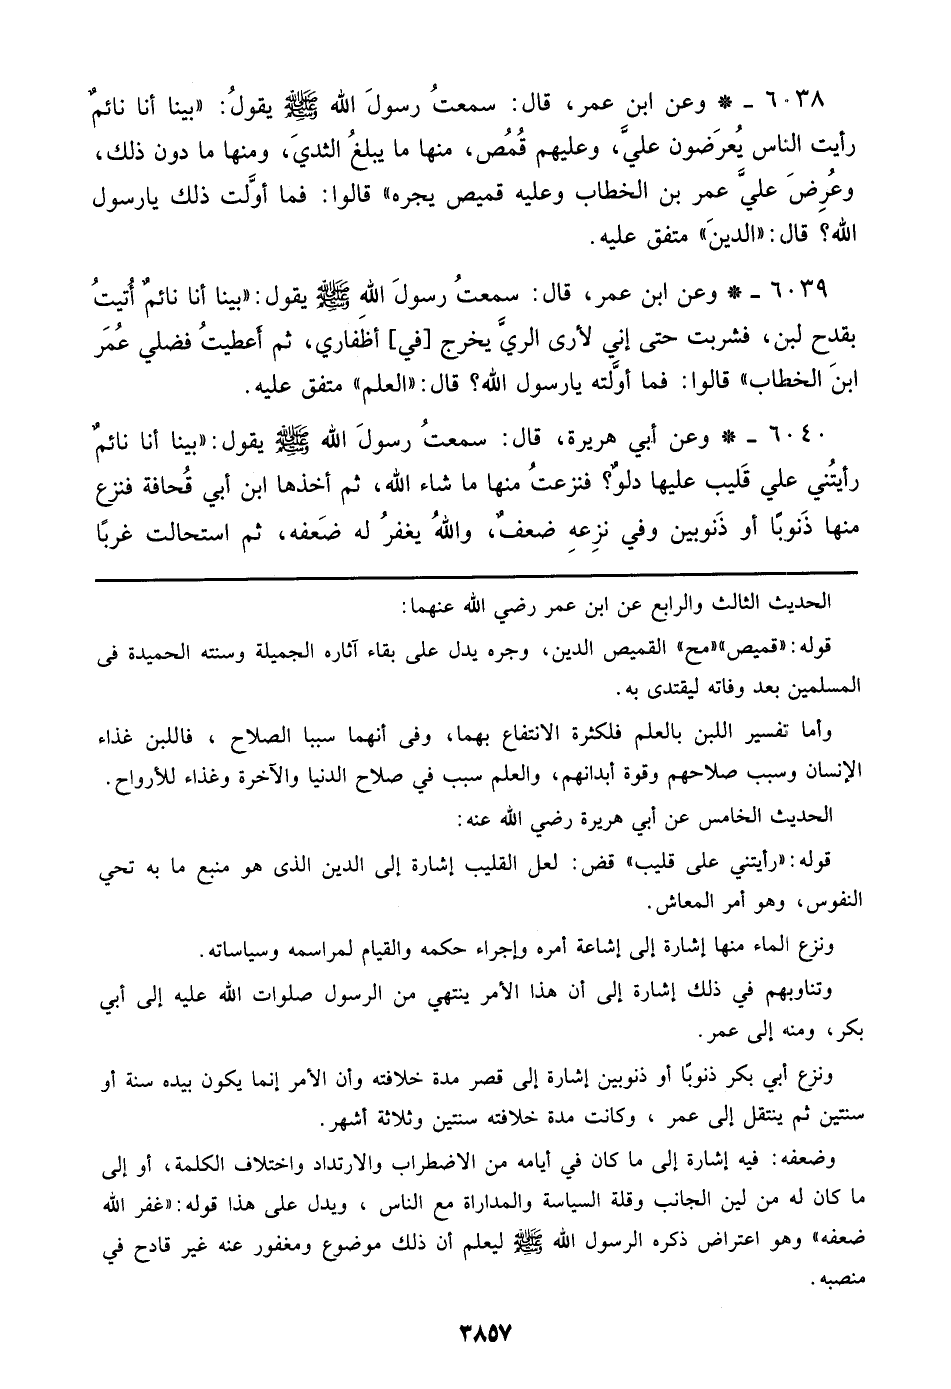 ٦٠٣٨ ـ * وعن ابن عمر، قال: سمعتُ رسولَ الله ﷺ يقولُ: «بينا أنا نائمٌ
رأيت الناس يُعرَضون عليَّ، وعليهم قُمُص، منها ما يبلغُ الثديَ، ومنها ما دون ذلك،
وعُرِضَ عليَّ عمر بن الخطاب وعليه قميص يجره» قالوا: فما أوَّلت ذلك يارسول
الله؟ قال: «الدينَ» متفق عليه.
٦٠٣٩ ـ * وعن ابن عمر، قال: سمعتُ رسولَ اللهِ ﷺ يقول: «بينا أنا نائمٌ أُتيتُ
بقدح لبن، فشربت حتى إني لأرى الريَّ يخرج [في] أظفاري، ثم أَعطيتُ فضلي عُمَر
ابنَ الخطاب» قالوا: فما أوَّلته يارسول الله؟ قال: «العلم» متفق عليه.
٦٠٤٠ ـ * وعن أبي هريرة، قال: سمعتُ رسولَ الله ﷺ يقول: «بينا أنا نائمٌ
رأيتُني علي قَليب عليها دلوٌ؟ فنزعتُ منها ما شاء الله، ثم أخذها ابن أبي قُحافة فنزع
منها ذَنوبًا أو ذَنوبين وفي نزعِهِ ضعفٌ، واللهُ يغفرُ له ضَعفه، ثم استحالت غربًا
الحديث الثالث والرابع عن ابن عمر رضي الله عنهما:
قوله: «قميص» «مح» القميص الدين، وجره يدل على بقاء آثاره الجميلة وسنته الحميدة فى
المسلمين بعد وفاته ليقتدى به.
وأما تفسير اللبن بالعلم فلكثرة الانتفاع بهما، وفى أنهما سببا الصلاح ، فاللبن غذاء
الإنسان وسبب صلاحهم وقوة أبدانهم، والعلم سبب في صلاح الدنيا والآخرة وغذاء للأرواح.
الحديث الخامس عن أبي هريرة رضي الله عنه:
قوله: «رأيتني على قليب» قض: لعل القليب إشارة إلى الدين الذى هو منبع ما به تحي
النفوس، وهو أمر المعاش.
ونزع الماء منها إشارة إلى إشاعة أمره وإجراء حكمه والقيام لمراسمه وسياساته.
وتناوبهم في ذلك إشارة إلى أن هذا الأمر ينتهي من الرسول صلوات الله عليه إلى أبي
بكر، ومنه إلى عمر.
ونزع أبي بكر ذنوبًا أو ذنوبين إشارة إلى قصر مدة خلافته وأن الأمر إنما يكون بيده سنة أو
سنتين ثم ينتقل إلى عمر ، وكانت مدة خلافته سنتين وثلاثة أشهر.
وضعفه: فيه إشارة إلى ما كان في أيامه من الاضطراب والارتداد واختلاف الكلمة، أو إلى
ما كان له من لين الجانب وقلة السياسة والمداراة مع الناس ، ويدل على هذا قوله: «غفر الله
ضعفه» وهو اعتراض ذكره الرسول الله ﷺ ليعلم أن ذلك موضوع ومغفور عنه غير قادح في
منصبه.
٣٨٥٧